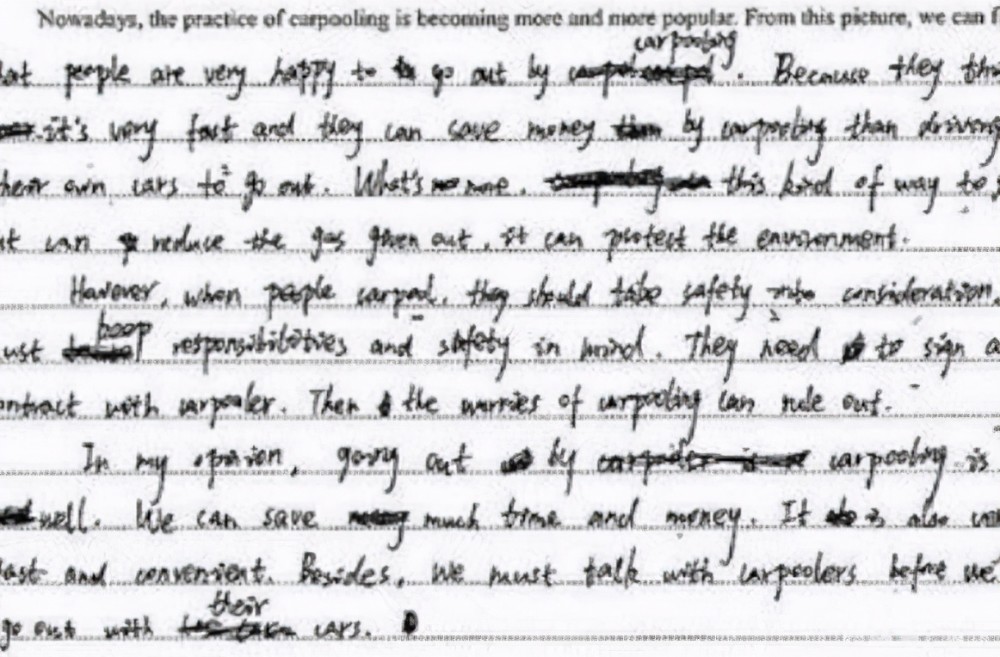 Nowadays, the practice of carpooling is becoming more and more popular. From this picture, we can
people are very happy to go out by carpooling. Because they
it's very fast and they can save money by carpooling than driving
own cars to go out. What's more, this kind of way to
can reduce the gas given out, it can protect the environment.
However, when people carpool, they should take safety into consideration,
keep responsibilities and safety in mind. They need to sign a
with carpooler. Then the worries of carpooling can rule out.
In my opinion, going out by carpooling is
well. We can save much time and money. It is also
and convenient. Besides, we must talk with carpoolers before we
go out with their cars.